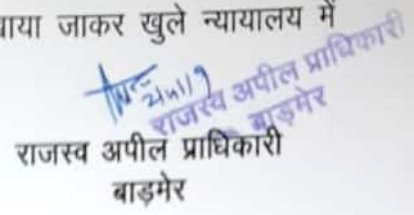 ाया जाकर खुले न्यायालय में
राजस्व अपील प्राधिकारी
बाड़मेर
राजस्व अपील प्राधिकारी
बाड़मेर